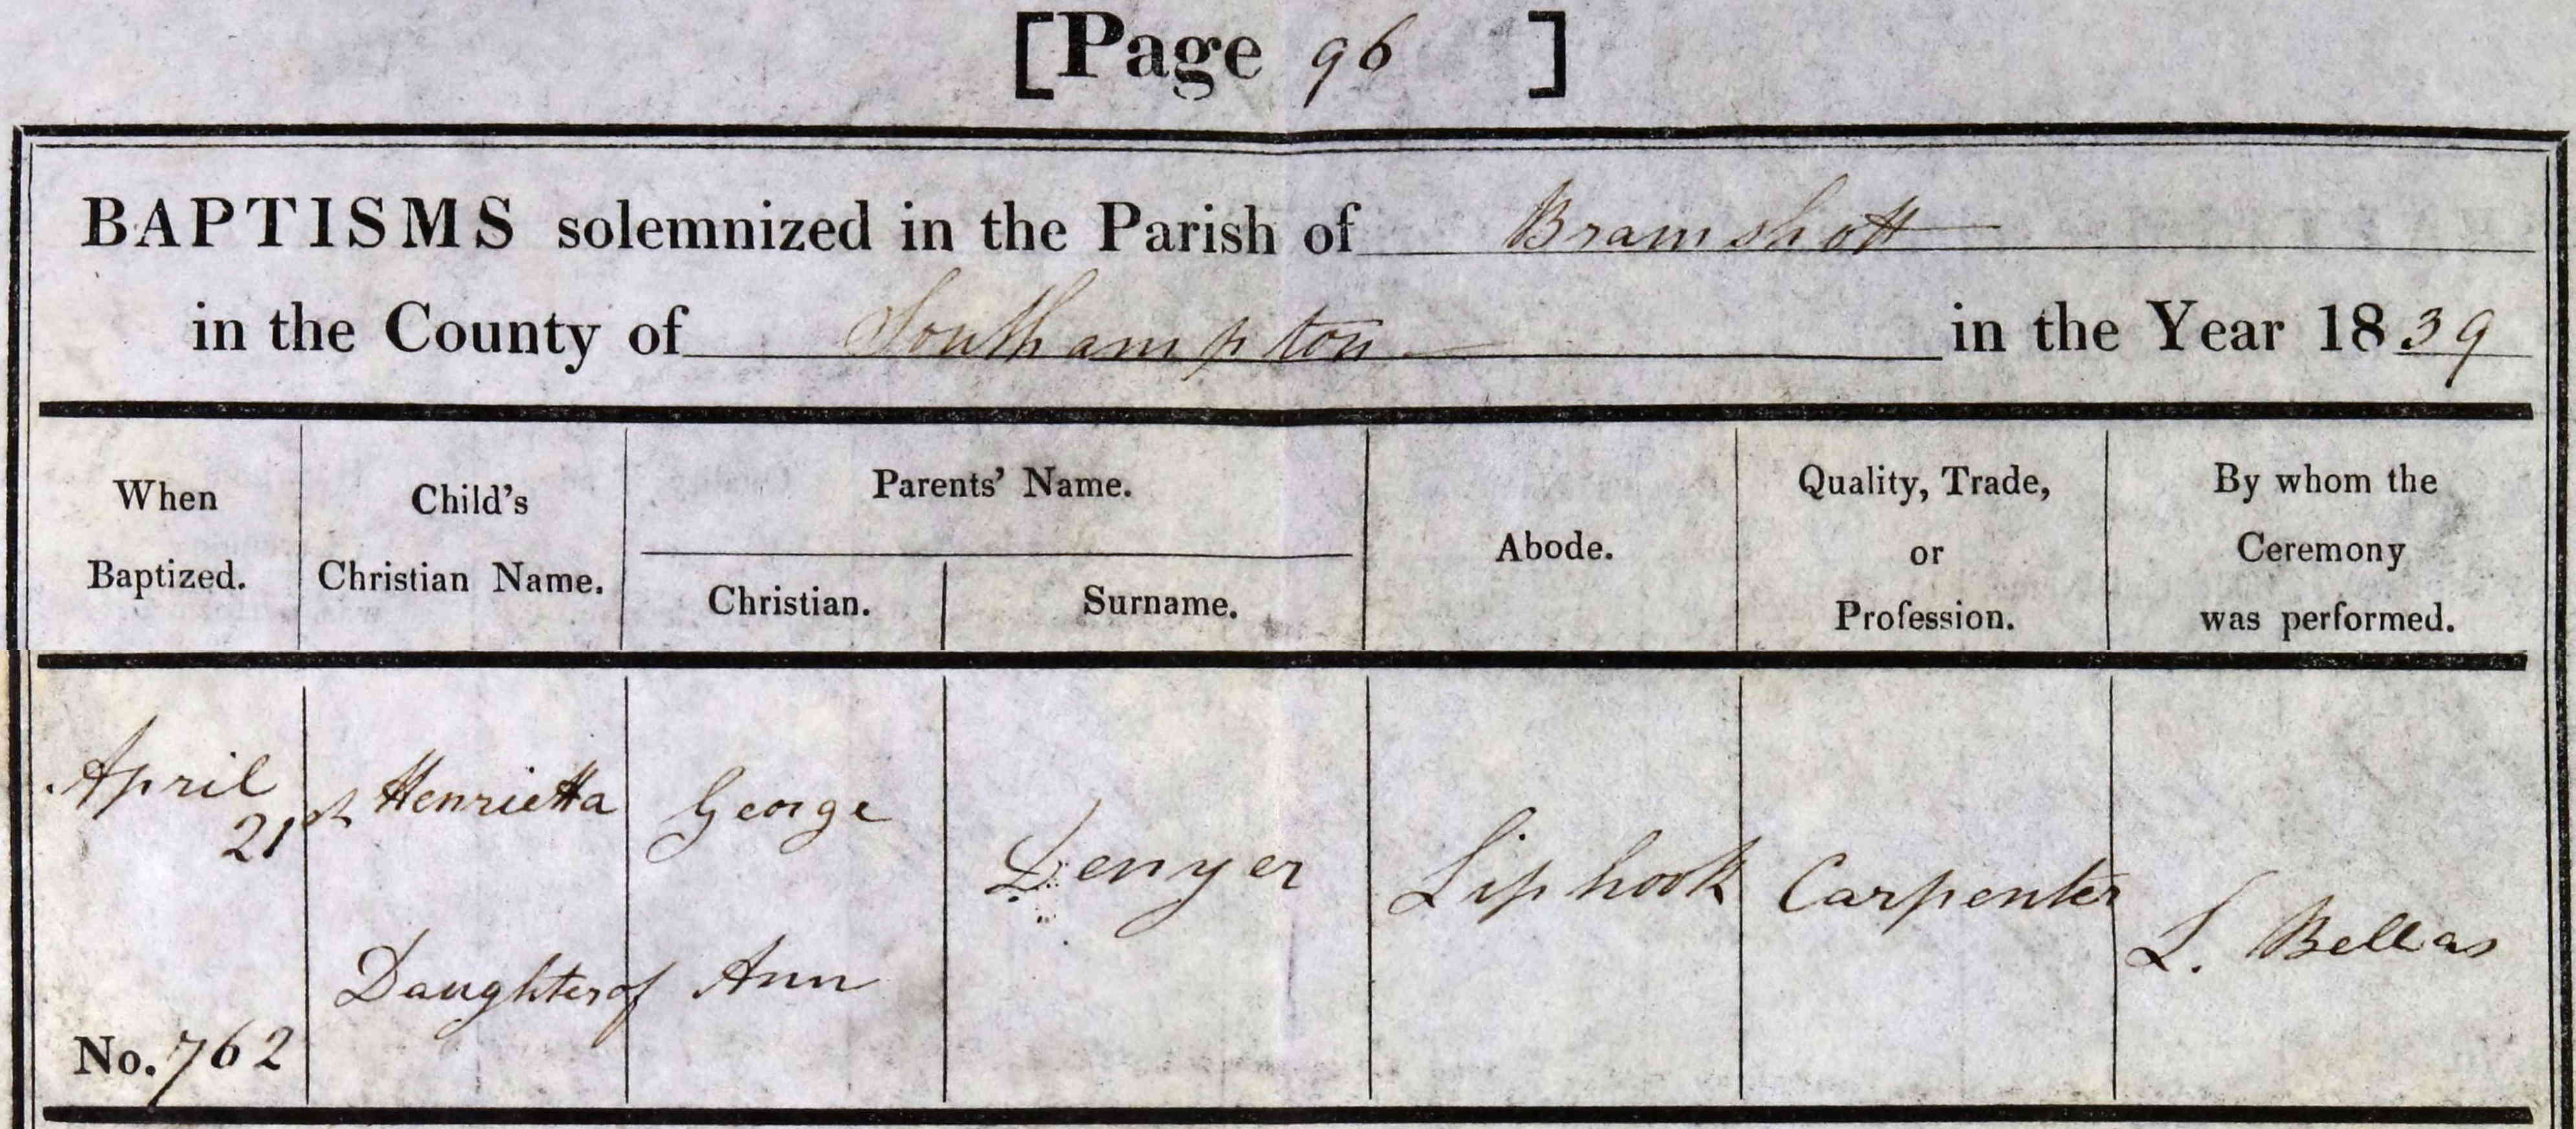 [Page 96 ]
BAPTISMS solemnized in the Parish of Bramshott
in the County of Southampton in the Year 1839
When
Baptized.
Child's
Christian Name.
Parents' Name.
Christian.
Surname.
Abode.
Quality, Trade,
or
Profession.
By whom the
Ceremony
was performed.
April
21st
No. 762
Henrietta
Daughter of
George
Ann
Denyer
Liphook
Carpenter
L. Bellas